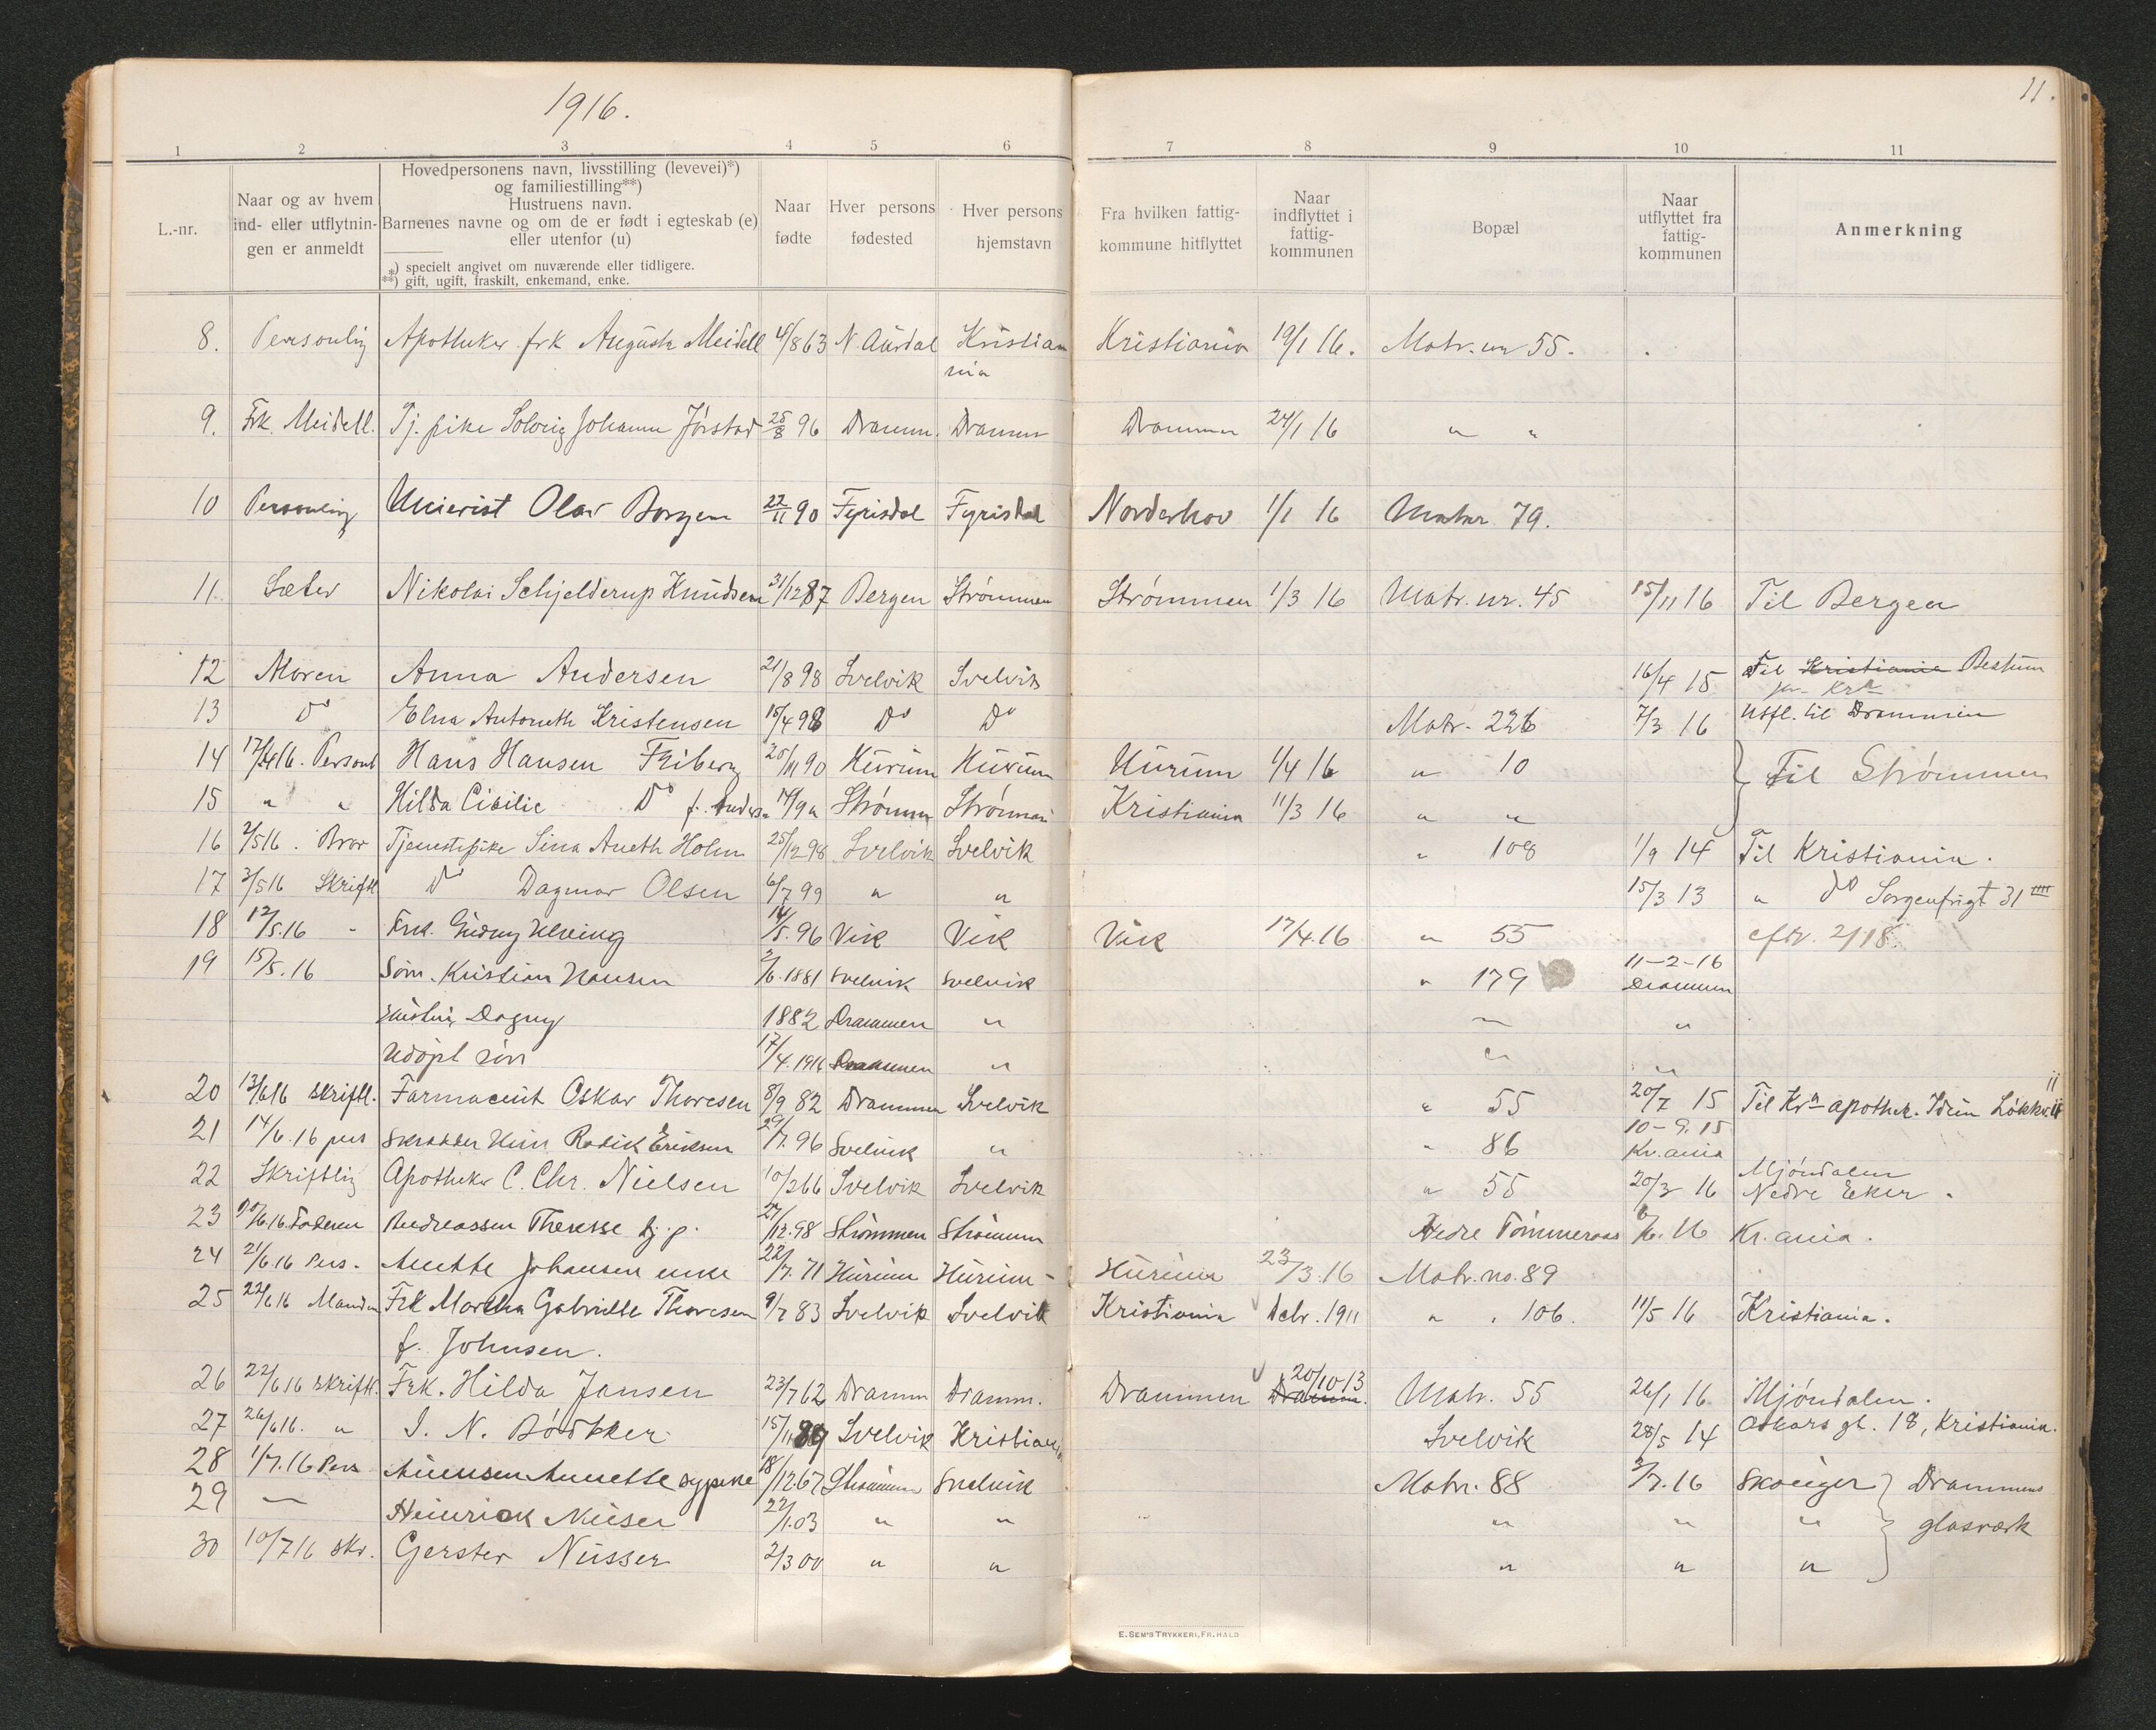 1916.
11.
1 2 3 4 5 6 7 8 9 10 11
L.-nr.
Naar og av hvem
ind- eller utflytnin-
gen er anmeldt
Hovedpersonens navn, livsstilling (levevei)*)
og familiestilling**)
Hustruens navn.
Barnenes navne og om de er født i egteskab (e)
eller utenfor (u)
*) specielt angivet om nuværende eller tidligere.
**) gift, ugift, fraskilt, enkemand, enke.
Naar
fødte
Hver persons
fødested
Hver persons
hjemstavn
Fra hvilken fattig-
kommune hitflyttet
Naar
indflyttet i
fattig-
kommunen
Bopæl
Naar
utflyttet fra
fattig-
kommunen
Anmerkning
8. Personlig Apotheker frk Augusta Meidell 4/8 63 N. Aurdal Kristian Kristiania 19/1 16. Matr. nr 55.
nia
9. Frk. Meidell. Tj. pike Solveig Johanne Jørstad 25/8 96 Dramm. Drammen Drammen 24/1 16 " "
10 Personlig Olav Borgen 22/11 90 Fyrisdal Fyrisdal Norderhov 1/1 16 Matr 79.
11. Nikolai Schjelderup Knudsen 31/12 87 Bergen Strømmen Strømmen 1/3 16 Matr. nr. 45 15/11 16 Til Bergen
12 Moren Anna Andersen 21/8 98 Svelvik Svelvik 16/4 15 Til Kristiania Bestum
pr. Kra
13 Do Elna Antoneth Kristensen 15/4 98 Do Do Matr. 226 7/3 16 Utfl. til Drammen
14 17/4 16. Personl Hans Hansen Friberg 25/11 90 Hurum Hurum Hurum 1/4 16 " 10 Til Strømmen
15 " " Hilda Cicilie Do f. Anders. Strømm Strømmen Kristiania 11/3 16 " "
16 2/5 16. Bror Tjenestepike Sina Aneth Holm 25/12 98 Svelvik Svelvik " 108 1/9 14 Til Kristiania.
17 3/5 16 Skriftl Do Dagmar Olsen 6/7 99 " " 15/3 13 " do Sorgenfrigt 31 IIII
18 12/5.16 " Frk. Gudny Ulving /5. 96 Vik Vik Vik 17/4.16 " 55 eftr. 2/18
19 15/5.16 Søm. Kristian Hansen 2/6. 1881 Svelvik Svelvik " 179 11-2-16
Drammen
Hustru Dagny 1882 Drammen " " "
Udøpt søn 17/4. 1916 Drammen " " "
20 13/6 16 skriftl. Farmaceut Oskar Thoresen 8/9 82 Drammen Svelvik " 55 20/7 15 Til Kra apothek. Idun Løkkv. 11
21 14/6.16 pers Skrædder Eriksen 29/7. 96 Svelvik " " 86 10-9.15
Kr.ania
22 Skriftlig Apotheker C. Chr. Nielsen 10/2 66 Svelvik Svelvik " 55 20/3 16 Mjøndalen
Nedre Eker.
23 20/6 16. Faderen Andreassen Therese tj. p. 27/12. 98 Strømmen Strømmen Nedre Tømmeraas 6/6. 16 Kr. ania.
24 21/6.16 Pers. Anette Johansen enke 22/7. 71 Hurum Hurum Hurum 23/3.16 Matr. no. 89
25 22/6 16 Manden Frk Martha Gabrielle Thoresen 9/7 83 Svelvik Svelvik Kristiania Debr. 1911 " " 106. 11/5 16 Kristiania.
f. Johnsen.
26 22/6 16 skriftl. Frk. Hilda Jansen 23/7 62 Dramm Dramm. Drammen 20/10 13 Dramm. Matr. 55 26/1 16 Mjøndalen.
27 26/6 16. " J. N. Bødtker 15/11 89 Svelvik Kristiania Svelvik 28/5 14 Oskars gt. 18, Kristiania.
28 1/7.16 Pers Annette sypike 18/12. 67 Strømmen Svelvik Matr. 88 3/7.16 Skouger Drammens
29 — Heinrick 22/1.03 " " " " " glasværk
30 10/7 16 skr. Gerster Nüsser 2/3 00 " " " " "
E. SEM'S TRYKKERI, FR.HALD